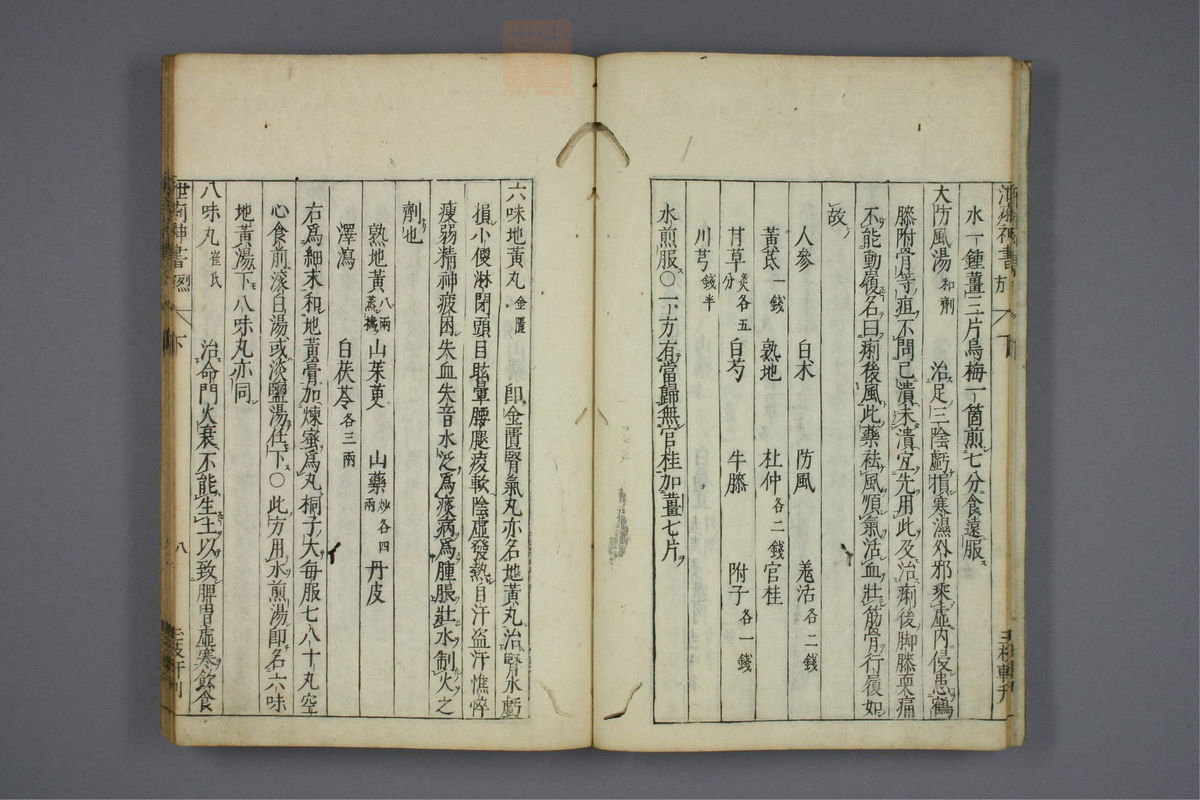 水一鍾薑三片烏梅一箇煎七分食遠服
大防風湯 和劑 治足三陰虧損寒濕外邪乘虛内侵患鶴
膝附骨等疽不問已潰未潰宜先用此及治痢後脚膝耎痛
不能動履名曰痢後風此藥祛風順氣活血壯筋骨行履如
故
人參 白朮 防風 羗活各二錢
黃芪一錢 熟地 杜仲各二錢 官桂
甘草炙各五分 白芍 牛膝 附子各一錢
川芎錢半
水煎服〇一方有當歸無官桂加薑七片
六味地黃丸 金匱 即金匱腎氣丸亦名地黃丸治腎水虧
損小便淋閉頭目眩暈腰腿痠軟陰虛發熱自汗盜汗憔悴
瘦弱精神疲困失血失音水泛爲痰病爲腫脹壯水制火之
劑也
熟地黃八兩蒸擣 山茱萸 山藥炒各四兩 丹皮
澤瀉 白茯苓各三兩
右爲細末和地黃膏加煉蜜爲丸桐子大每服七八十丸空
心食前滚白湯或淡鹽湯任下〇此方用水煎湯即名六味
地黃湯下八味丸亦同
八味丸 崔氏 治命門火衰不能生土以致脾胃虛寒飲食
八